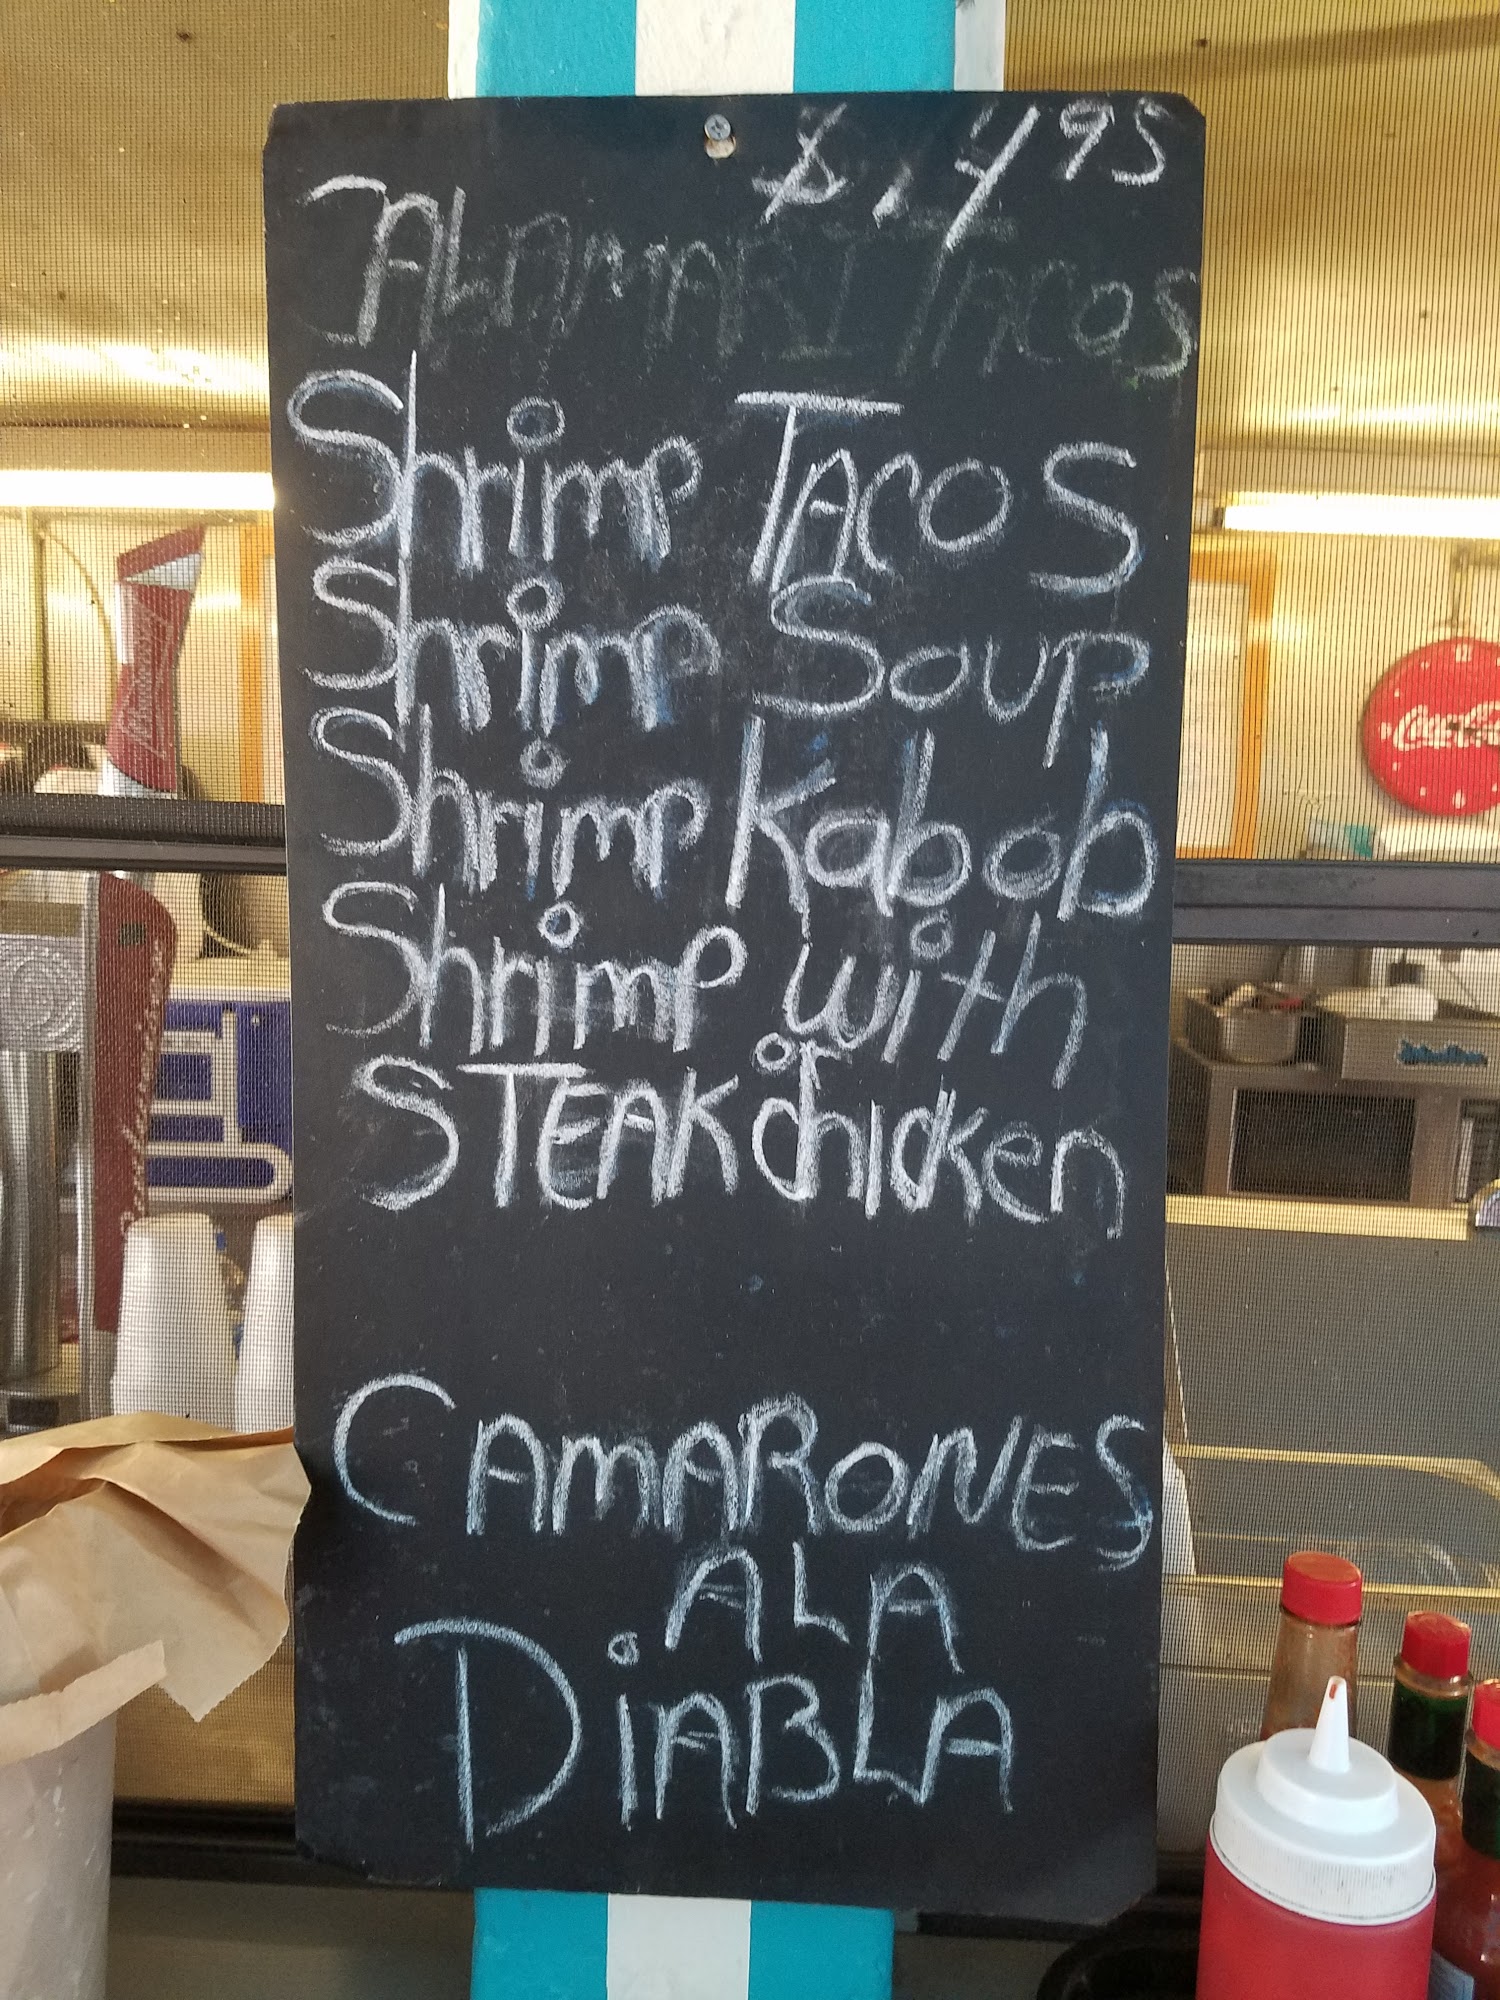 $.495
TACOS
Shrimp TACOS
Shrimp Soup
Shrimp Kabob
Shrimp with
or
STEAK chicken
CAMARONES
ALA
DiABLA
Budweiser
Coca-Cola